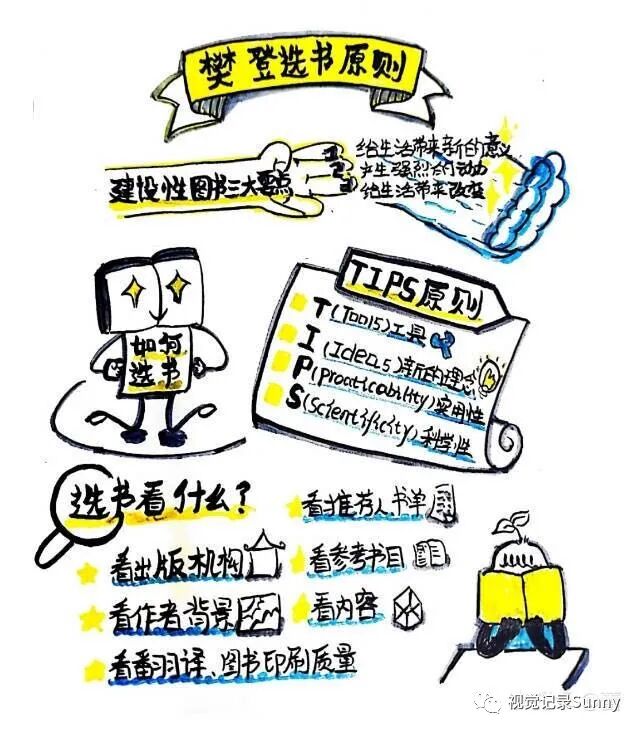 樊登选书原则
建设性图书三大要点
1.
2.
3.
给生活带来新的意义
产生强烈的动力
给生活带来改变
如何
选书
TIPS原则
T(Tools)工具
I(Ideas)新的理念
P(Practicability)实用性
S(Scientificity)科学性
选书看什么?
看出版机构
看作者背景
看翻译、图书印刷质量
看推荐人书单
看参考书目
看内容
视觉记录Sunny